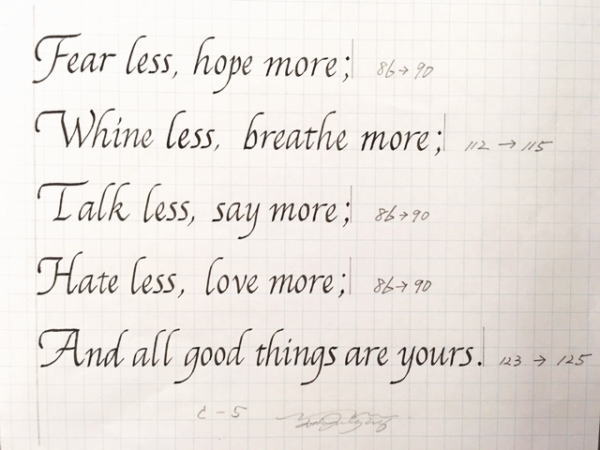 Fear less, hope more; 86→90
Whine less, breathe more; 112→115
Talk less, say more; 86→90
Hate less, love more; 86→90
And all good things are yours. 123→125
c-5